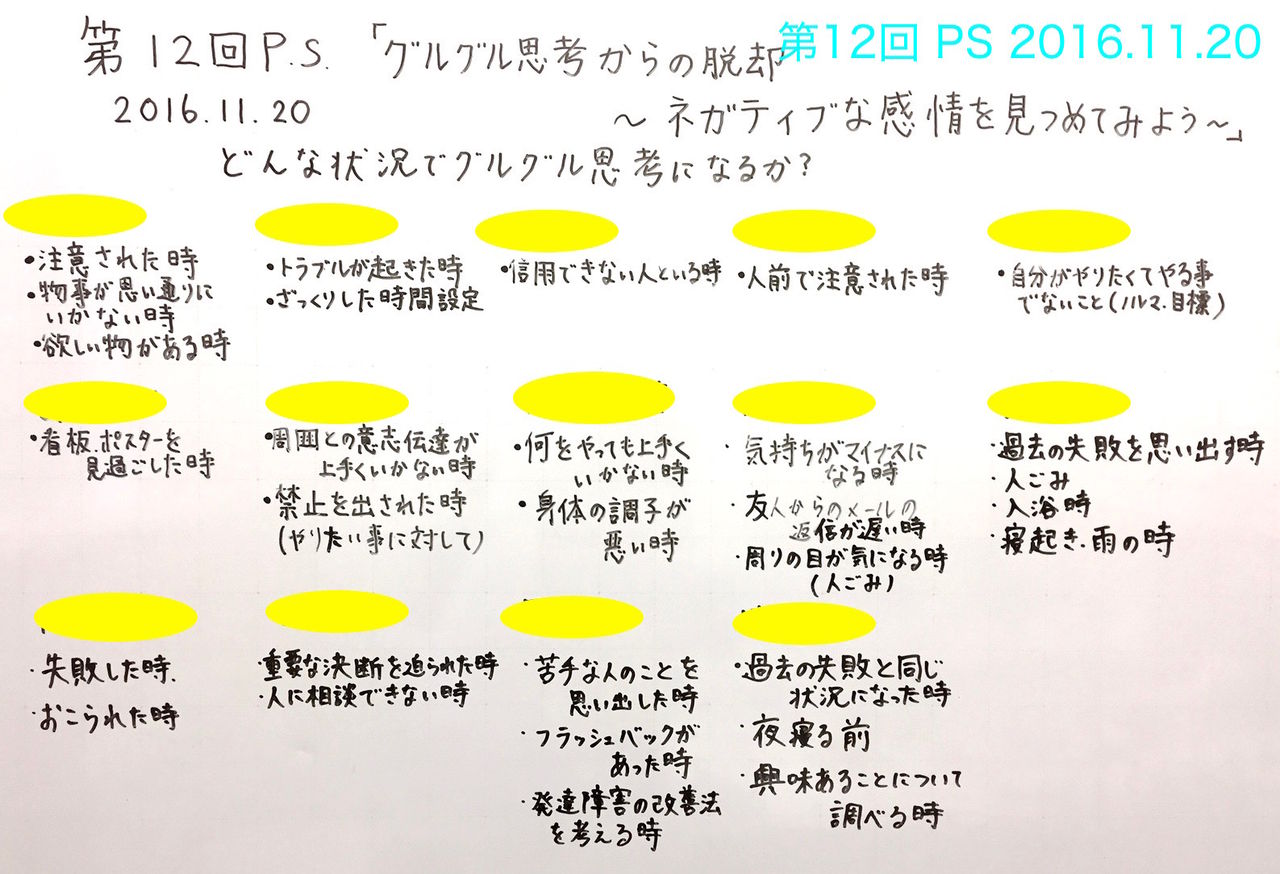 第12回P.S.「グルグル思考からの脱却
第12回 PS 2016.11.20
2016.11.20
～ネガティブな感情を見つめてみよう～」
どんな状況でグルグル思考になるか?
・注意された時
・物事が思い通りに
いかない時
・欲しい物がある時
・トラブルが起きた時
・ざっくりした時間設定
・信用できない人といる時
・人前で注意された時
・自分がやりたくてやる事
でないこと(ノルマ.目標)
・看板.ポスターを
見過ごした時
・周囲との意志伝達が
上手くいかない時
・禁止を出された時
(やりたい事に対して)
・何をやっても上手く
いかない時
・身体の調子が
悪い時
・気持ちがマイナスに
なる時
・友人からのメールの
返信が遅い時
・周りの目が気になる時
(人ごみ)
・過去の失敗を思い出す時
・人ごみ
・入浴時
・寝起き.雨の時
・失敗した時.
・おこられた時
・重要な決断を迫られた時
・人に相談できない時
・苦手な人のことを
思い出した時
・フラッシュバックが
あった時
・発達障害の改善法
を考える時
・過去の失敗と同じ
状況になった時
・夜寝る前
・興味あることについて
調べる時